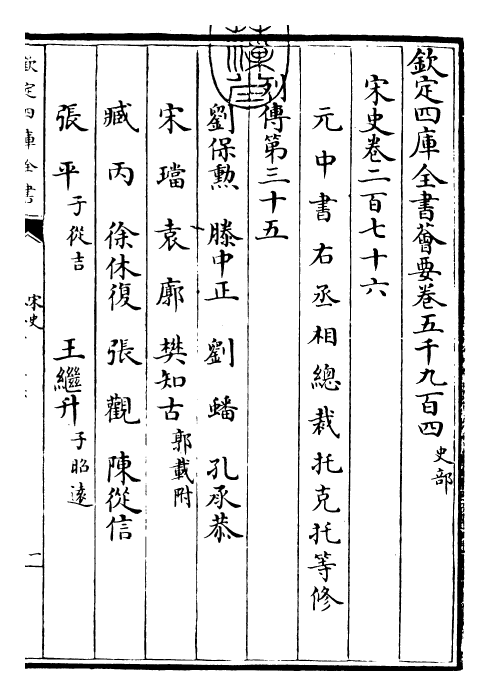 欽定四庫全書薈要卷五千九百四 史部
宋史卷二百七十六
元中書右丞相總裁托克托等修
列傳第三十五
劉保勲 滕中正 劉蟠 孔承恭
宋璫 袁廓 樊知古 郭載附
臧丙 徐休復 張觀 陳從信
張平 子從吉 王繼升 子昭遠
欽定四庫全書
宋史